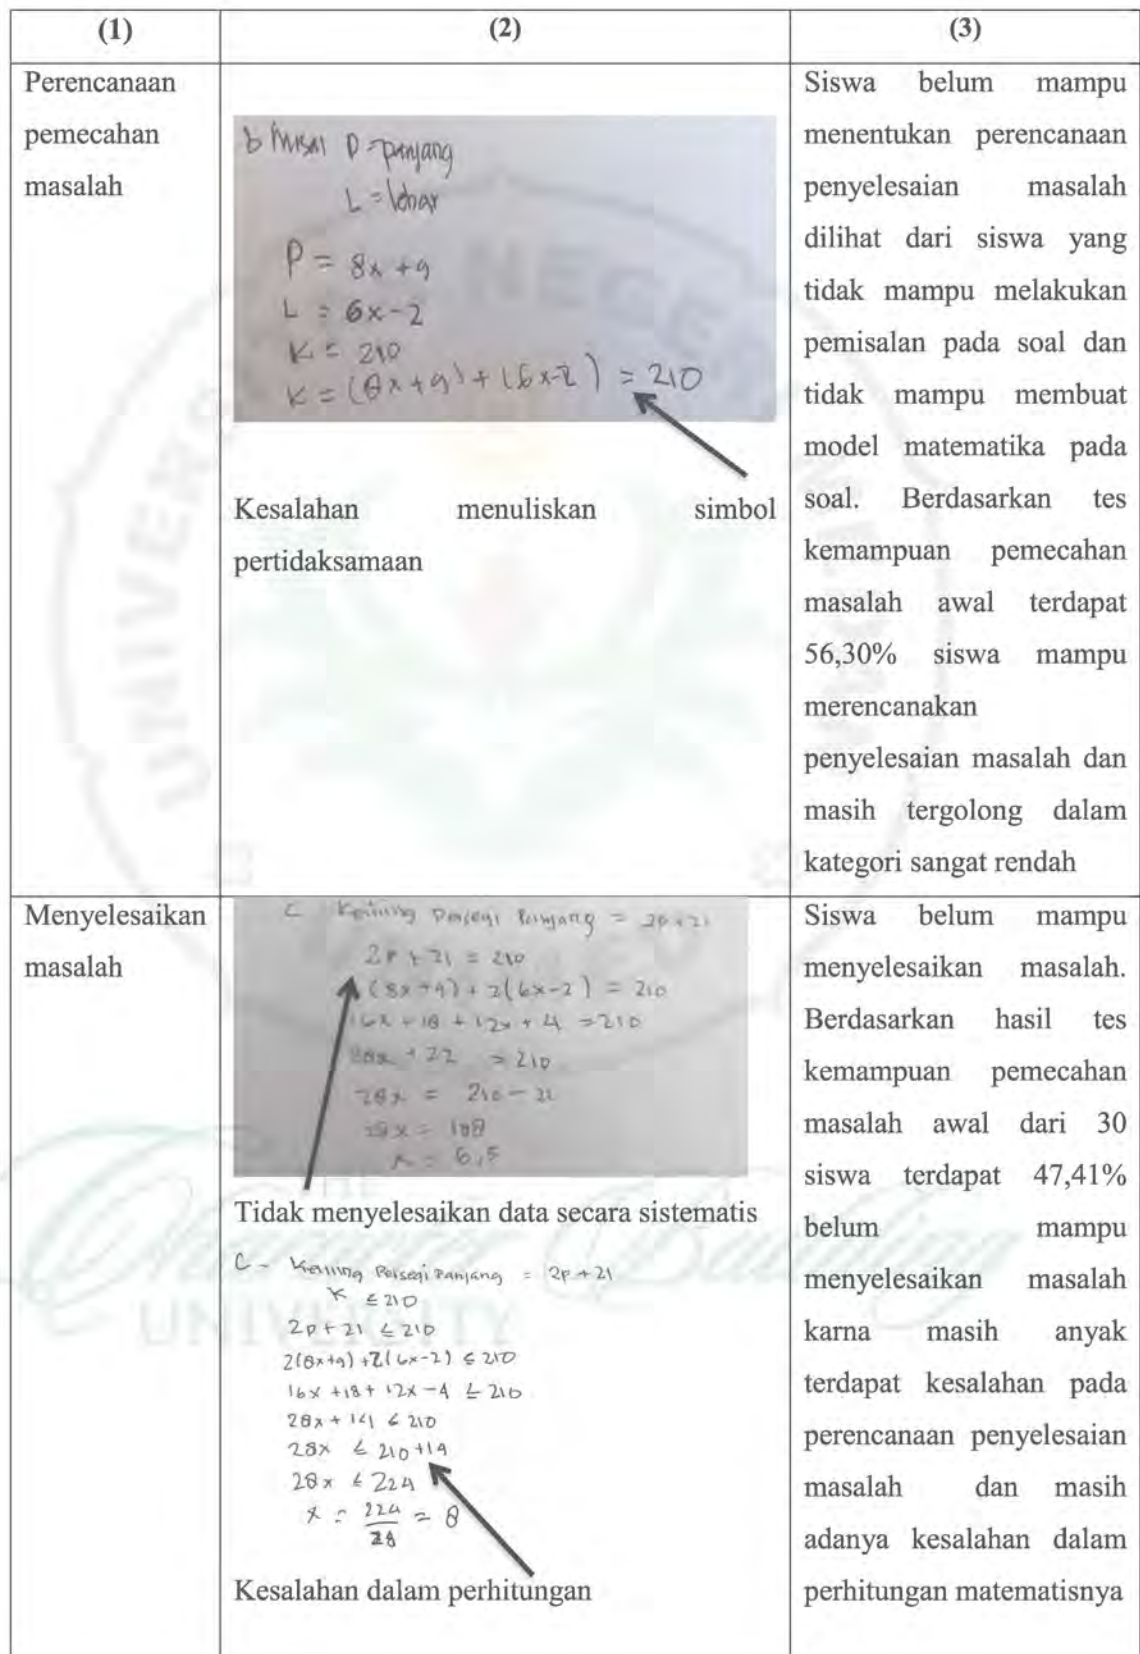 (1)
(2)
(3)
Perencanaan
pemecahan
masalah
b Misal P = panjang
L = lebar
P = 8x + 9
L = 6x - 2
K = 210
K = (8x + 9) + (6x - 2) = 210
Kesalahan menuliskan simbol
pertidaksamaan
Siswa belum mampu
menentukan perencanaan
penyelesaian masalah
dilihat dari siswa yang
tidak mampu melakukan
pemisalan pada soal dan
tidak mampu membuat
model matematika pada
soal. Berdasarkan tes
kemampuan pemecahan
masalah awal terdapat
56,30% siswa mampu
merencanakan
penyelesaian masalah dan
masih tergolong dalam
kategori sangat rendah
Menyelesaikan
masalah
C Keliling Persegi Panjang = 2p + 2l
2p + 2l = 210
(8x + 9) + 2(6x - 2) = 210
16x + 18 + 12x + 4 = 210
28x + 22 = 210
28x = 210 - 22
28x = 188
x = 6,5
Tidak menyelesaikan data secara sistematis
C - Keliling Persegi Panjang = 2p + 2l
K ≤ 210
2p + 2l ≤ 210
2(8x+9) + 2(6x-2) ≤ 210
16x + 18 + 12x - 4 ≤ 210
28x + 14 ≤ 210
28x ≤ 210 + 14
28x ≤ 224
x = 224/28 = 8
Kesalahan dalam perhitungan
Siswa belum mampu
menyelesaikan masalah.
Berdasarkan hasil tes
kemampuan pemecahan
masalah awal dari 30
siswa terdapat 47,41%
belum mampu
menyelesaikan masalah
karna masih anyak
terdapat kesalahan pada
perencanaan penyelesaian
masalah dan masih
adanya kesalahan dalam
perhitungan matematisnya